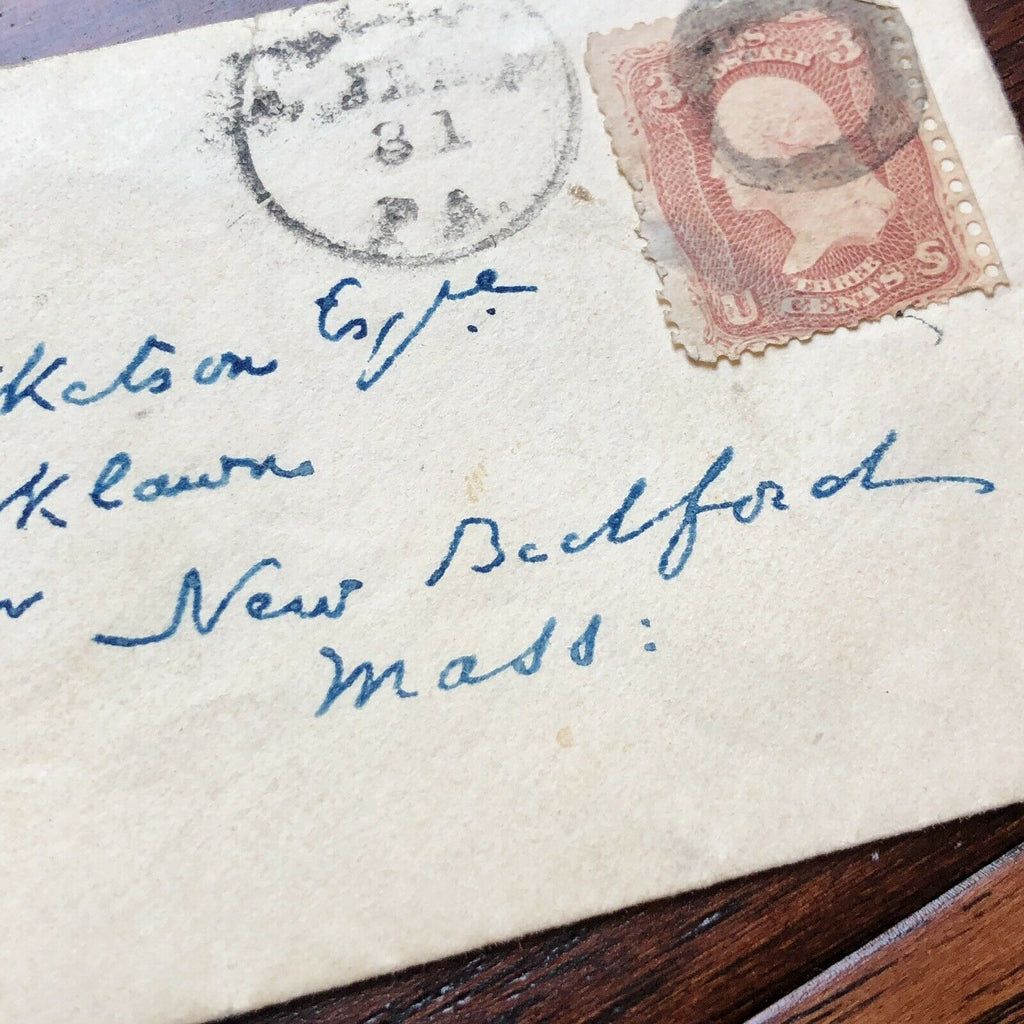 31
PA.
U.S. POSTAGE
3 3
THREE
U CENTS S
Ketson Esqre
Klawn
New Bedford
Mass: